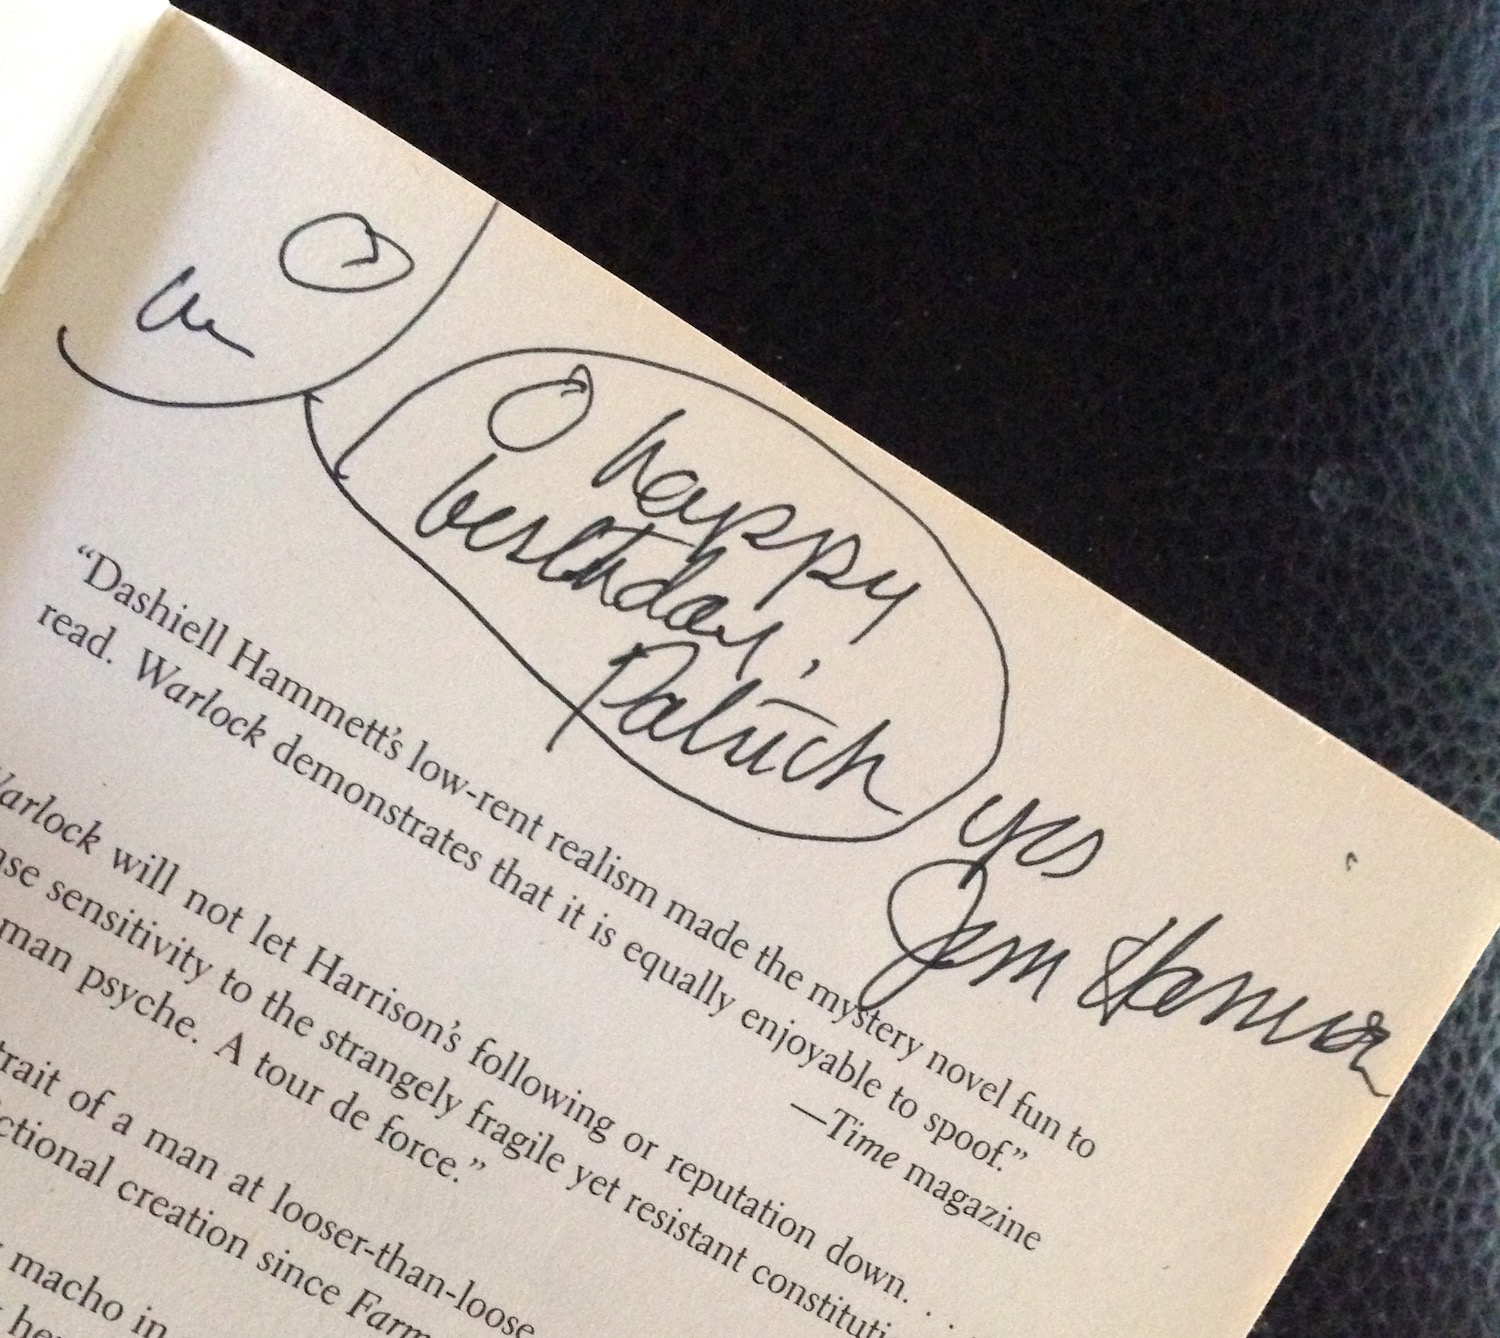 O happy
birthday,
Patrick
yes
Jim Harrison
“Dashiell Hammett’s low-rent realism made the mystery novel fun to
read. Warlock demonstrates that it is equally enjoyable to spoof.”
—Time magazine
Warlock will not let Harrison’s following or reputation down. . .
nse sensitivity to the strangely fragile yet resistant constituti
man psyche. A tour de force.”
trait of a man at looser-than-loose
ctional creation since Farm
macho in